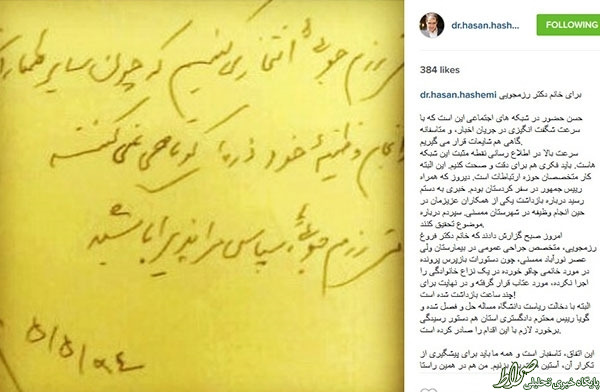 dr.hasan.hash...
FOLLOWING
384 likes
dr.hasan.hashemi برای خانم دکتر رزمجویی
حسن حضور در شبکه های اجتماعی این است که با
سرعت شگفت انگیزی در جریان اخبار، و متاسفانه
گاهی هم شایعات قرار می گیریم.
سرعت بالا در اطلاع رسانی نقطه مثبت این شبکه
هاست. باید فکری هم برای دقت و صحت کنیم. این البته
کار متخصصان حوزه ارتباطات است. دیروز که همراه
رییس جمهور در سفر کردستان بودم، خبری به دستم
رسید درباره بازداشت یکی از همکاران عزیزمان در
حین انجام وظیفه در شهرستان ممسنی. سپردم درباره
موضوع تحقیق کنند.
امروز صبح گزارش دادند که خانم دکتر فروغ
رزمجویی، متخصص جراحی عمومی در بیمارستان ولی
عصر نورآباد ممسنی، چون دستورات بازپرس پرونده
در مورد خانمی چاقو خورده در یک نزاع خانوادگی را
اجرا نکرده، مورد عتاب قرار گرفته و در نهایت برای
چند ساعت بازداشت شده است!
البته با دخالت ریاست دانشگاه مساله حل و فصل شده و
گویا رییس محترم دادگستری استان هم دستور رسیدگی
برخورد لازم با این اقدام را صادر کرده است.
این اتفاق، تاسفبار است و همه ما باید برای پیشگیری از
تکرار آن، آستین بزنیم. من هم در همین راستا
انتظار می کنیم که چون سایر
انجام وظیفهٔ خود ذره‌ای کوتاهی نمی کنند
سپاس مرا پذیرا باشید
۵/۵/۹۴
صراط
پایگاه خبری تحلیلی